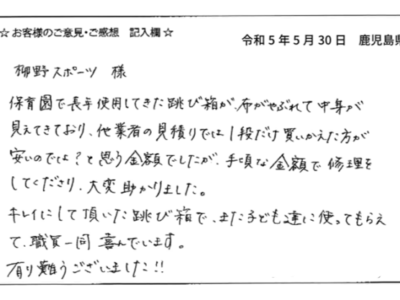 ☆ お客様のご意見・ご感想 記入欄 ☆
令和5年5月30日 鹿児島県
柳野スポーツ 様
保育園で長年使用してきた跳び箱が、布がやぶれて中身が
見えてきており、他業者の見積りでは1段だけ買いかえた方が
安いのでは?と思う金額でしたが、手頃な金額で修理を
してくださり、大変助かりました。
キレイにして頂いた跳び箱で、また子ども達に使ってもらえ
て、職員一同喜んでいます。
有り難うございました!!